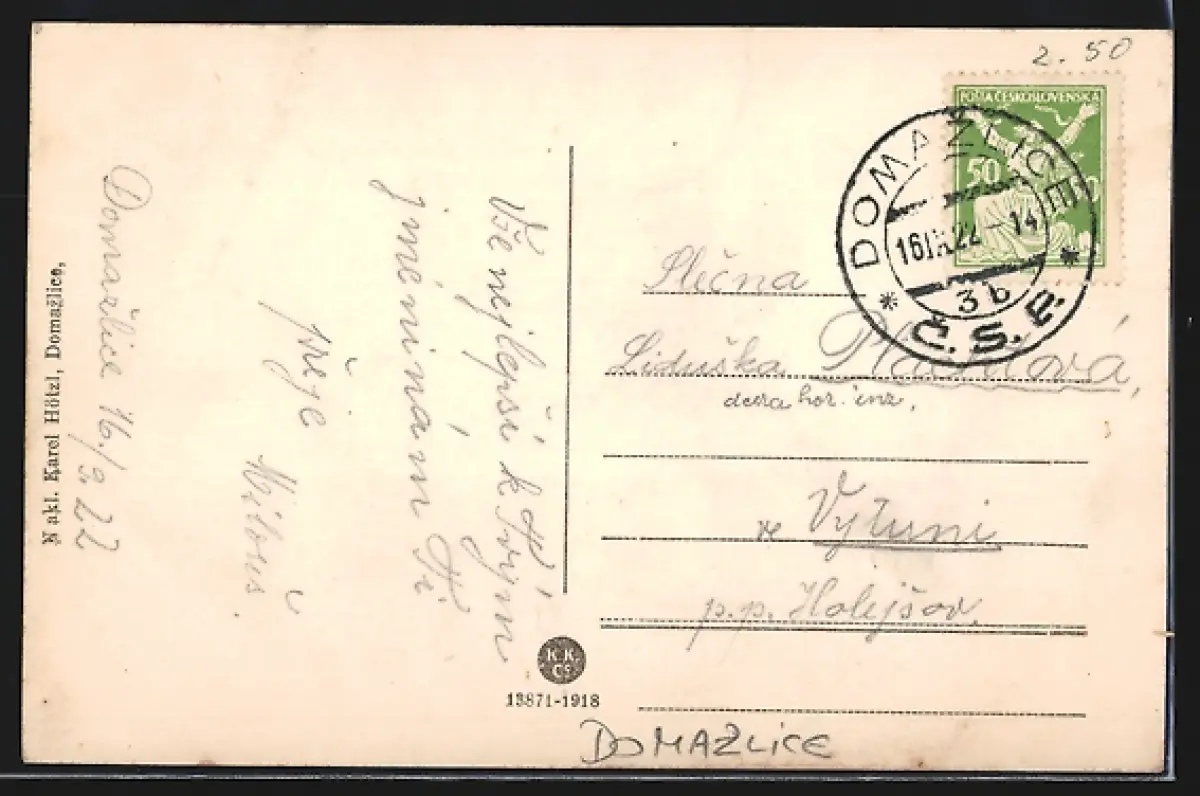 2.50
POŠTA ČESKOSLOVENSKÁ
50
DOMAŽLICE
16.IX.22-14
3b
Č.S.P.
Slečna
Liduška
dcera hor. inž.
ve Vytuni
p.p. Holejšov.
Domažlice 16./9.22
Vše nejlepší k Tvým
jmeninám Ti
přeje
Milouš.
Nakl. Karel Hötzl, Domažlice,
K.K.
Cº
13871-1918
DOMAŽLICE